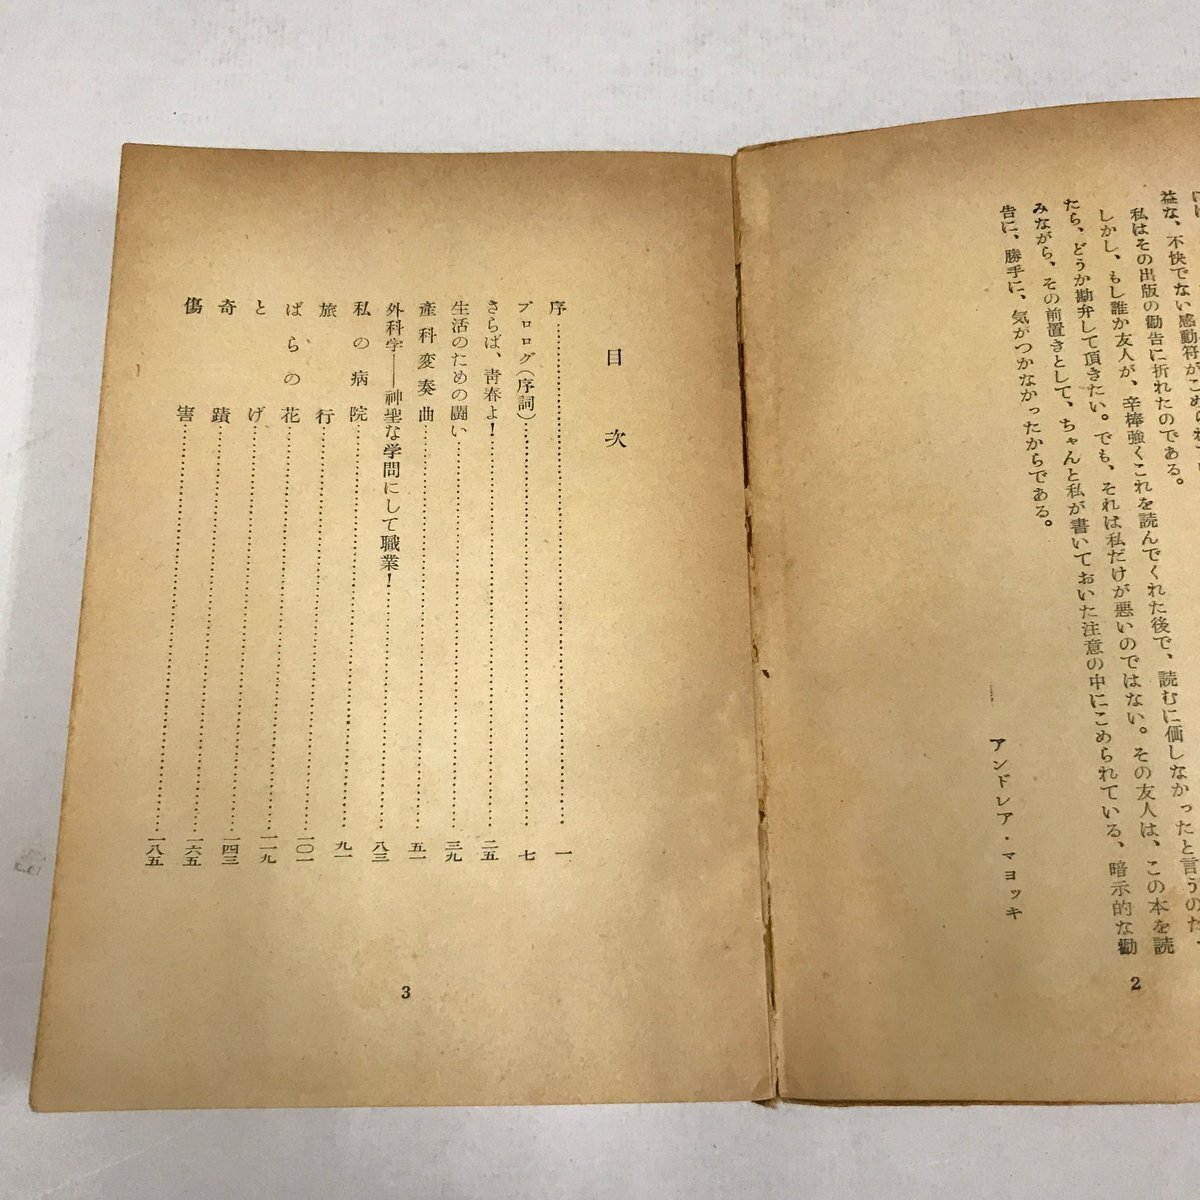 益な、不快でない感動符がこめられてい
私はその出版の勧告に折れたのである。
しかし、もし誰か友人が、辛棒強くこれを読んでくれた後で、読むに価しなかったと言うのだ
たら、どうか勘弁して頂きたい。でも、それは私だけが悪いのではない。その友人は、この本を読
みながら、その前置きとして、ちゃんと私が書いておいた注意の中にこめられている、暗示的な勧
告に、勝手に、気がつかなかったからである。
アンドレア・マヨッキ
2
目次
序……一
プロログ(序詞)……七
さらば、青春よ!……二五
生活のための闘い……三九
産科変奏曲……五一
外科学――神聖な学問にして職業!……八三
私の病院……九一
旅行……一〇一
ばらの花……一一九
とげ……一四三
奇蹟……一六五
傷害……一八五
3